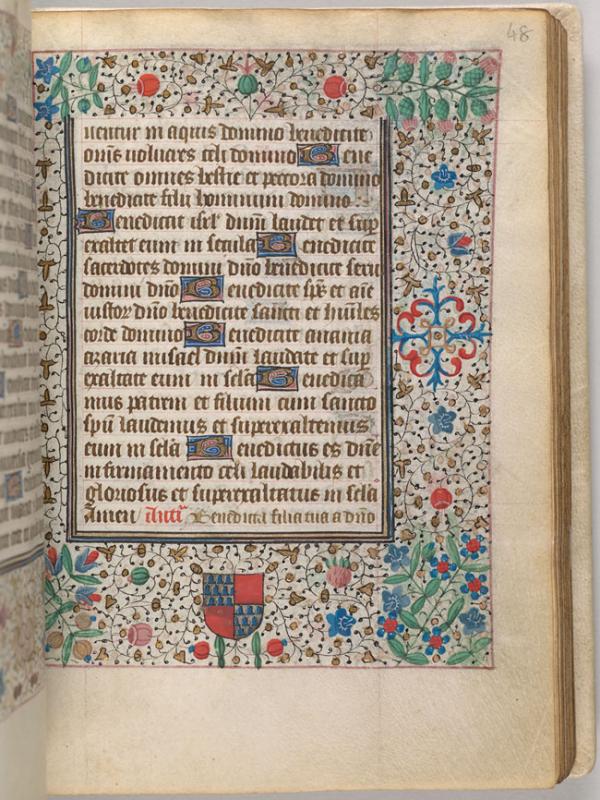 48
uentur in aquis domino benedicite
om̄s uolucres celi domino Bene
dicite omnes bestie et peccora domino
benedicite filij hominum domino :
Benedicat isrl' dnm̄ laudet et sup
exaltet eum in secula Benedicite
sacerdotes domini dn̄o benedicite serui
domini dn̄o Benedicite sp̄s et aīe
iustor dn̄o benedicite sancti et hūiles
corde domino Benedicite anania
azaria misael dnm̄ laudate et sup
exaltate eum in sēla Benedica
mus patrem et filium cum sancto
spū laudemus et superexaltemus
eum in sēla Benedictus es dn̄e
in firmamento celi laudabilis et
gloriosus et superexaltatus in sēla
Amen Benedicta filia tua a dn̄o